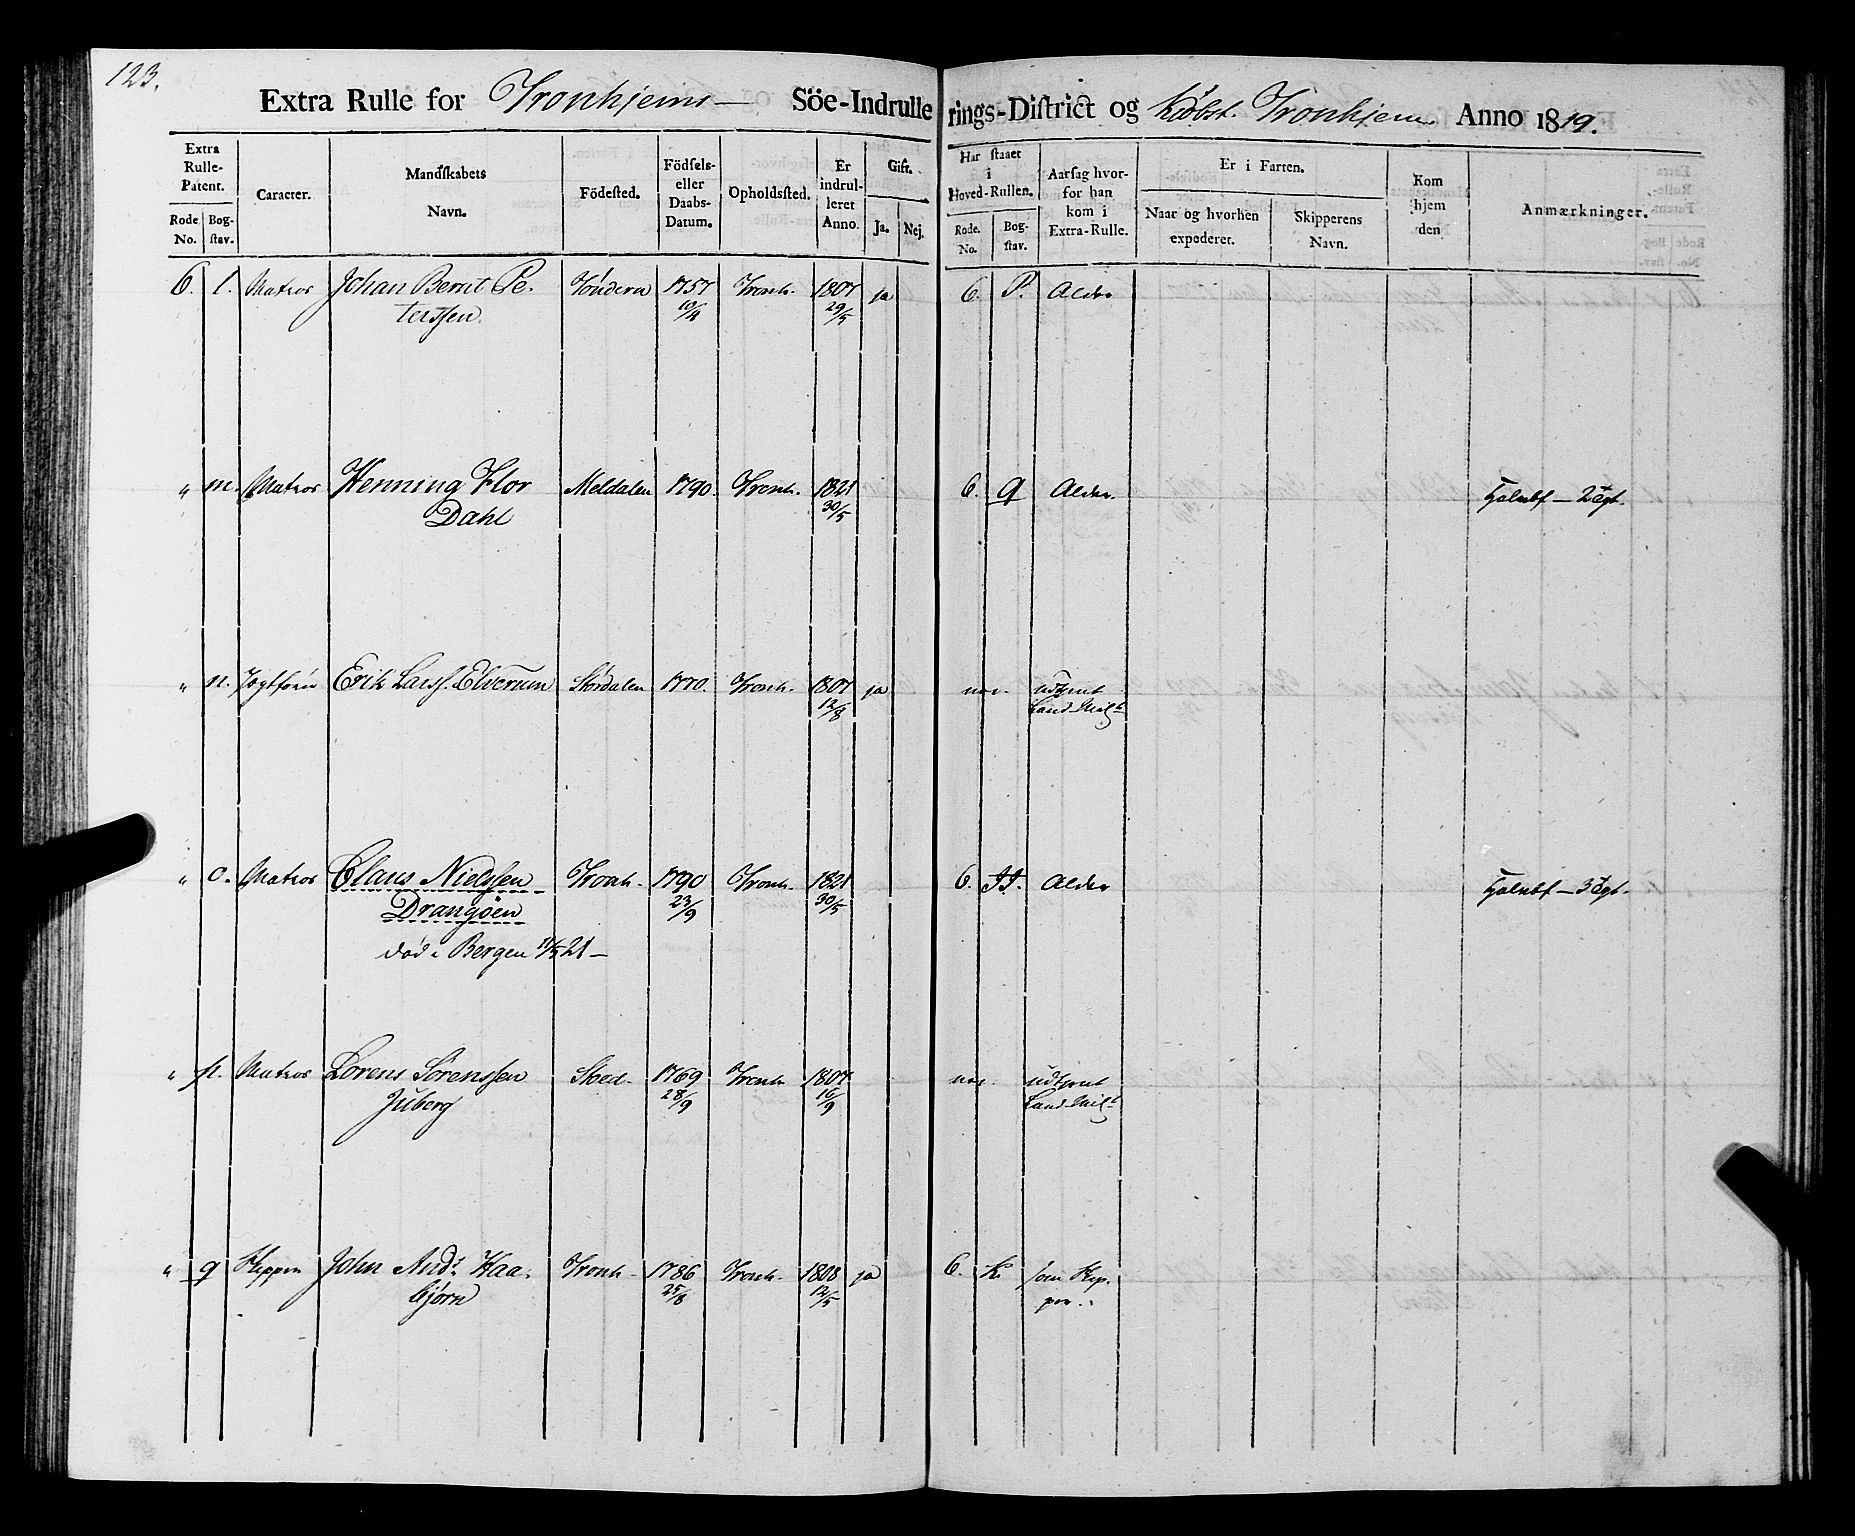 123.
Extra Rulle for Tronhjems — Söe-Indrullerings-District og Kiöbst. Tronhjem Anno 1819.
Extra Rulle-Patent. Caracter. Mandskabets Navn. Födested. Födsels- eller Daabs-Datum. Opholdssted. Er indrulleret Anno. Gift. Har staaet i Hoved-Rullen. Aarsag hvorfor han kom i Extra-Rulle. Er i Farten. Kom hjem den Anmærkninger.
Rode No. Bogstav. Ja. Nej. Rode. No. Bogstav. Naar og hvorhen expederet. Skipperens Navn.
6. l. Matros Johan Bernt Pe- Töndern 1757 Tronh. 1807 ja 6. P. Alder
terssen. 10/4 29/5
" m. Matros Henning Flor Meldalen 1790. Tronh. 1821 6. q Alder. 2
Dahl 30/5
" n. Jagtförer Erik Larss. Elverum Stördalen 1770. Tronh. 1807 ja udtjent
12/8 Land-Milt
" o. Matros Claus Nielssen Tronh. 1790 Tronh. 1821 6. II. Alder 3
Drangöen 23/9 30/5
död i Bergen 21 —
" p. Matros Lorens Sörenssen Stod. 1769 Tronh 1807 udtjent
Juberg 28/9 16/9 Land-Milt
" q Skipper John Ands Haa- Tronh. 1786 Tronh. 1808 ja 6. K. som Skip-
björn 25/8 12/5 per.